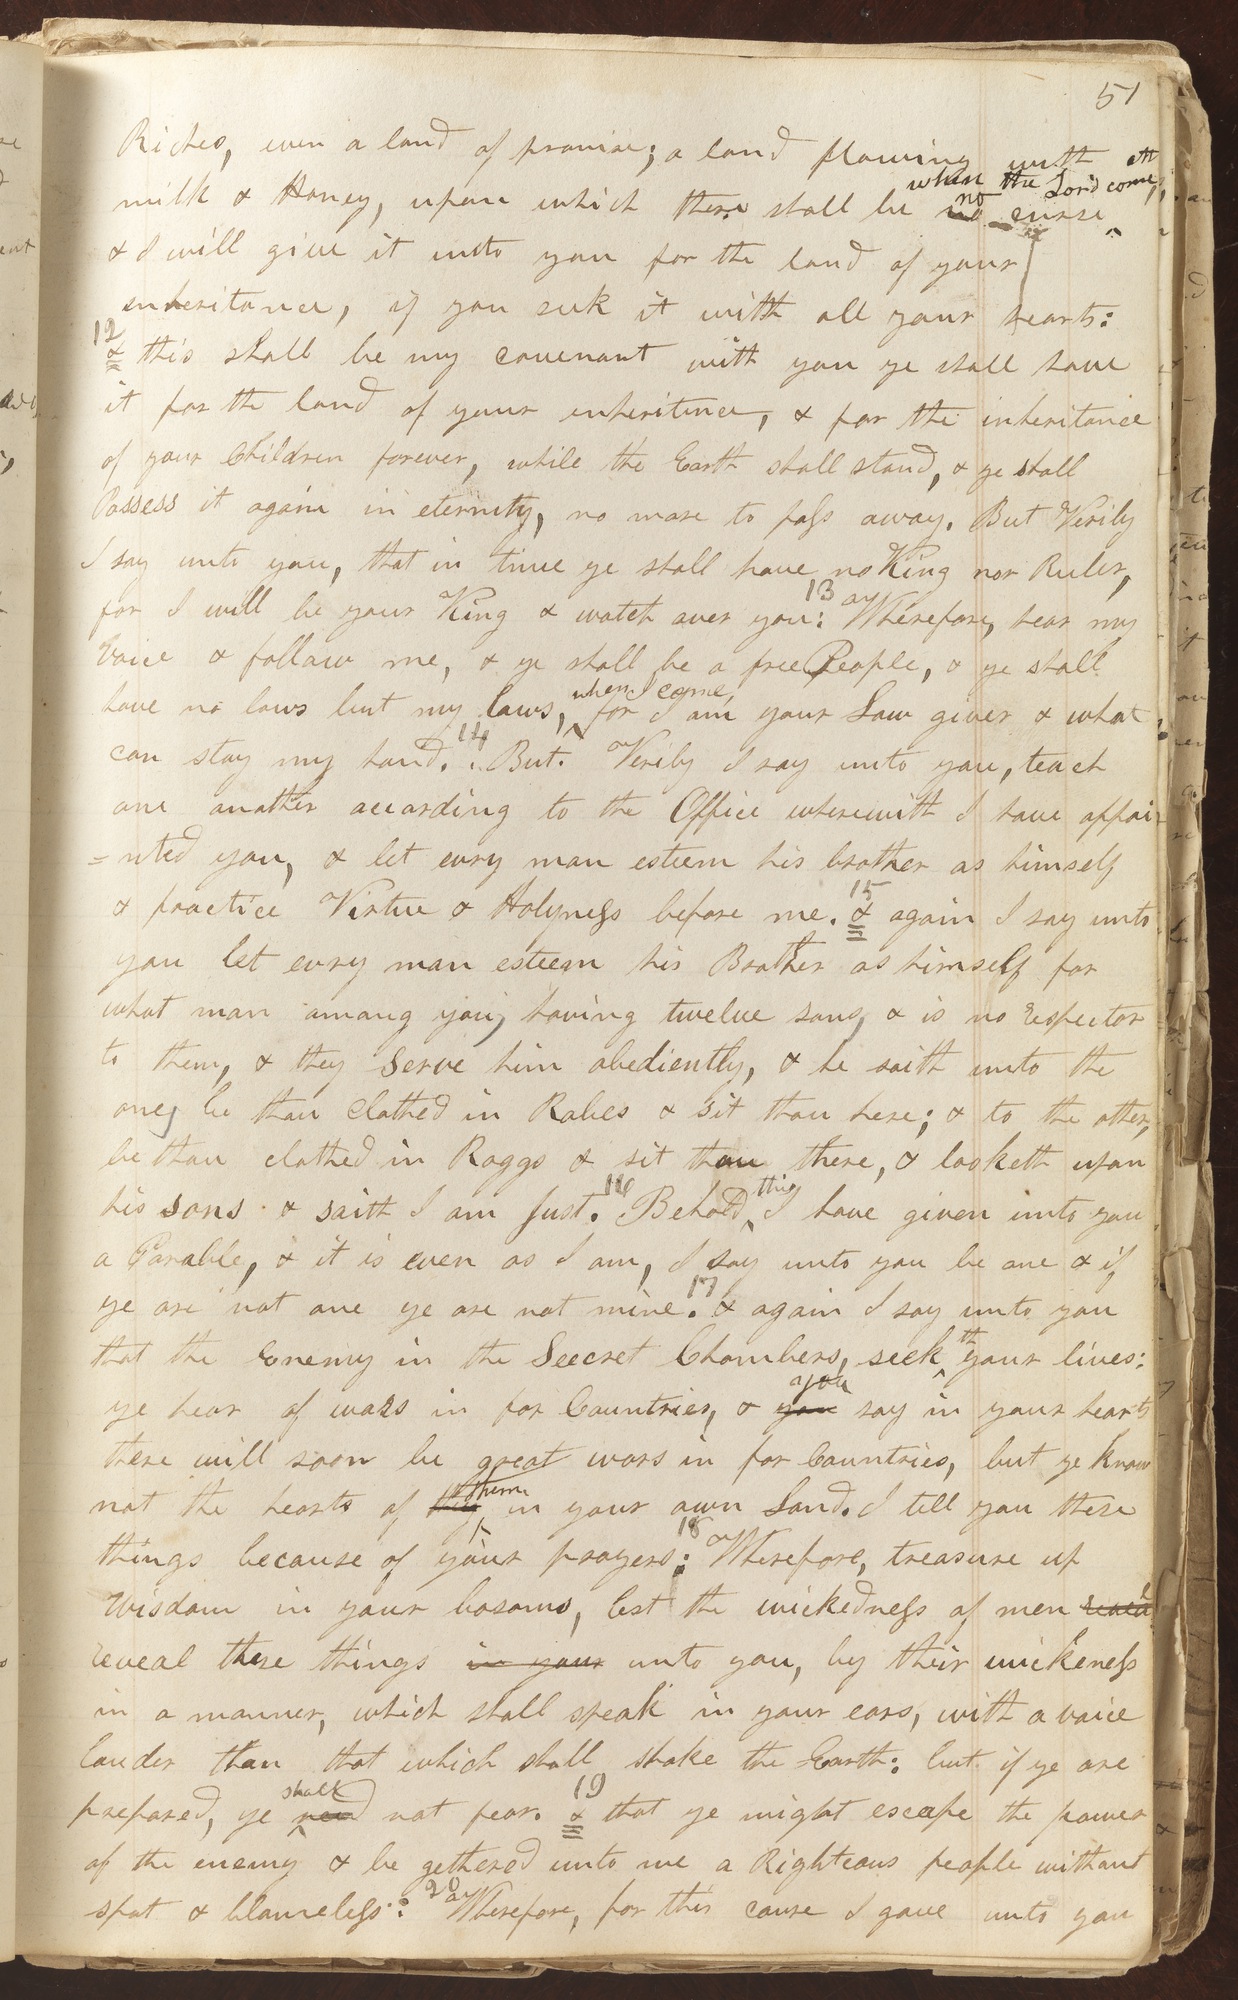 51
Riches, even a land of promise; a land flowing with
when the Lord cometh,
milk & Honey, upon which there shall be no no curse
& I will give it unto you for the land of your
inheritance, if you seek it with all your hearts:
12
& this shall be my covenant with you ye shall have
it for the land of your inheritince, & for the inheritance
of your Children forever, while the Earth shall stand, & ye shall
Possess it again in eternity, no more to pass away. But Verily
I say unto you, that in time ye shall have no King nor Ruler,
for I will be your King & watch over you: 13 Wherefore, hear my
Voice & follow me, & ye shall be a free People, & ye shall
have no laws but my laws, when I come, for I am your Law giver & what
can stay my hand. 14 But. Verily I say unto you, teach
one another according to the Office wherewith I have appoi-
=nted you, & let evry man esteem his brother as himself
& practice Virtue & Holyness before me. 15 & again I say unto
you let evry man esteem his Brother as himself for
what man among you, having twelve sons, & is no respector
to them, & they Serve him obediently, & he saith unto the
one, be thou Clothed in Robes & sit thou here; & to the other,
be thou clothed in Raggs & sit thou there, & looketh upon
his sons & saith I am Just. 16 Behold, this I have given unto you
a Parable, & it is even as I am, I say unto you be one & if
ye are not one ye are not mine. 17 & again I say unto you
that the Enemy in the Seecret Chambers, seek th your lives:
ye hear of wars in far Countries, & you you say in your hearts
there will soon be great wars in far Countries, but ye know
not the hearts of they them in your own Land. I tell you these
things because of your prayers: 18 Wherefore, treasure up
Wisdom in your bosoms, lest the wickedness of men reveal
reveal these things in your unto you, by their wickeness
in a manner, which shall speak in your ears, with a voice
louder than that which shall shake the Earth: but if ye are
prepared, ye need shall not fear. 19 & that ye might escape the power
of the enemy & be gethered unto me a Righteous people without
spot & blameless: 20 Wherefore, for this cause I gave unto you